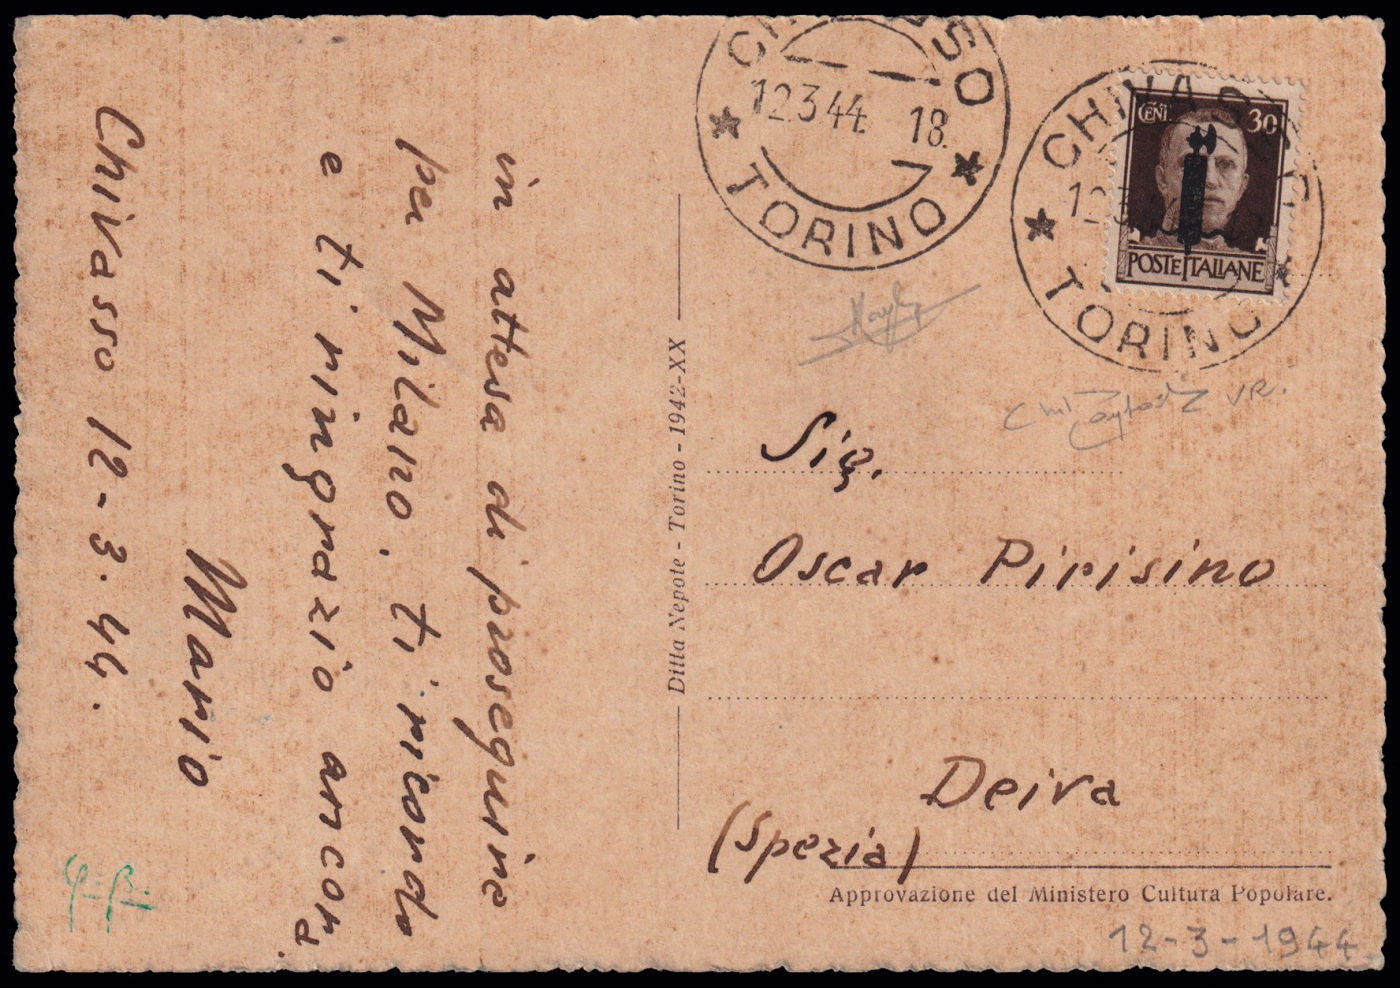 in attesa di proseguire
per Milano. ti ricordo
e ti ringrazio ancora
P.
Mario
Chivasso 12-3.44.
Ditta Nepote - Torino - 1942-XX
CHIVASSO
12.3.44. 18.
TORINO
CHIVASSO
12.3
TORINO
CENT. 30
POSTE ITALIANE
VR.
Sig.
Oscar Pirisino
Deiva
(Spezia)
Approvazione del Ministero Cultura Popolare.
12-3-1944